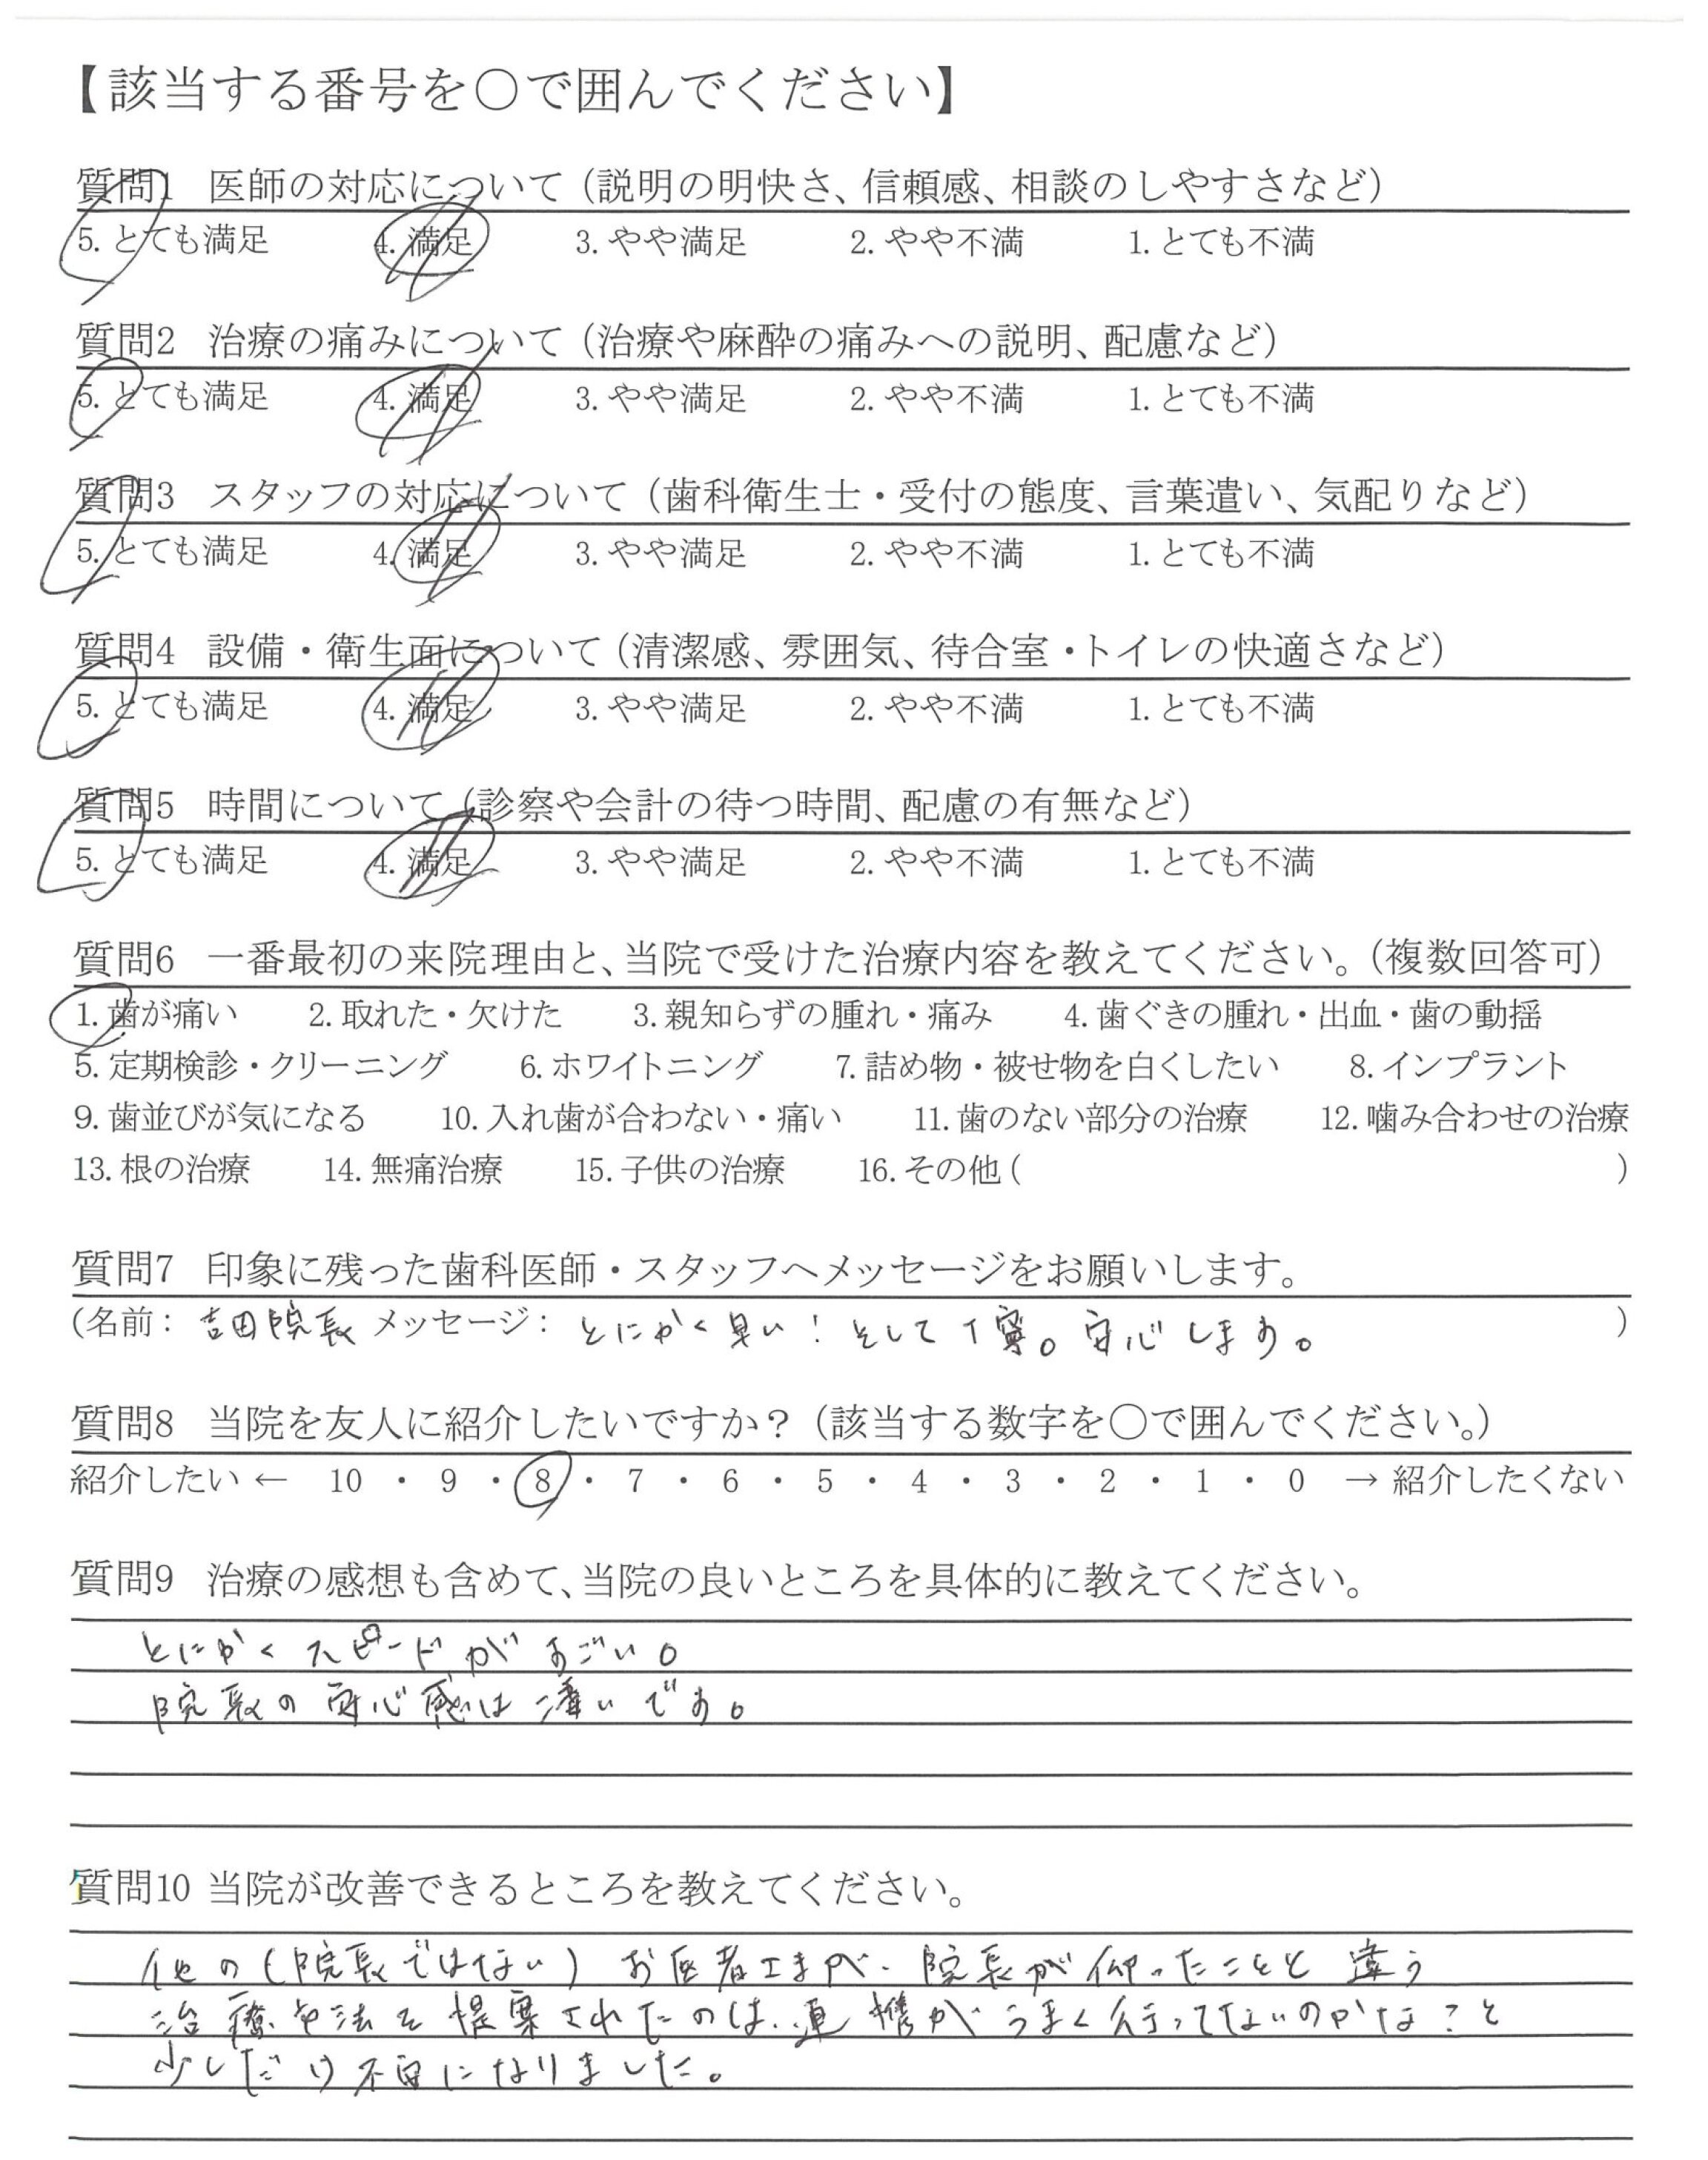 【該当する番号を○で囲んでください】
質問1 医師の対応について（説明の明快さ、信頼感、相談のしやすさなど）
5. とても満足 4. 満足 3. やや満足 2. やや不満 1. とても不満
質問2 治療の痛みについて（治療や麻酔の痛みへの説明、配慮など）
5. とても満足 4. 満足 3. やや満足 2. やや不満 1. とても不満
質問3 スタッフの対応について（歯科衛生士・受付の態度、言葉遣い、気配りなど）
5. とても満足 4. 満足 3. やや満足 2. やや不満 1. とても不満
質問4 設備・衛生面について（清潔感、雰囲気、待合室・トイレの快適さなど）
5. とても満足 4. 満足 3. やや満足 2. やや不満 1. とても不満
質問5 時間について（診察や会計の待つ時間、配慮の有無など）
5. とても満足 4. 満足 3. やや満足 2. やや不満 1. とても不満
質問6 一番最初の来院理由と、当院で受けた治療内容を教えてください。（複数回答可）
1. 歯が痛い 2. 取れた・欠けた 3. 親知らずの腫れ・痛み 4. 歯ぐきの腫れ・出血・歯の動揺
5. 定期検診・クリーニング 6. ホワイトニング 7. 詰め物・被せ物を白くしたい 8. インプラント
9. 歯並びが気になる 10. 入れ歯が合わない・痛い 11. 歯のない部分の治療 12. 噛み合わせの治療
13. 根の治療 14. 無痛治療 15. 子供の治療 16. その他（ ）
質問7 印象に残った歯科医師・スタッフへメッセージをお願いします。
（名前：吉田院長 メッセージ：とにかく早い！そして丁寧。安心します。 ）
質問8 当院を友人に紹介したいですか？（該当する数字を○で囲んでください。）
紹介したい ← 10 ・ 9 ・ 8 ・ 7 ・ 6 ・ 5 ・ 4 ・ 3 ・ 2 ・ 1 ・ 0 → 紹介したくない
質問9 治療の感想も含めて、当院の良いところを具体的に教えてください。
とにかくスピードがすごい。
院長の安心感は凄いです。
質問10 当院が改善できるところを教えてください。
他の（院長ではない）お医者さまが、院長が仰ったことと違う
治療方法を提案されたのは、連携がうまく行ってないのかな？と
少しだけ不安になりました。